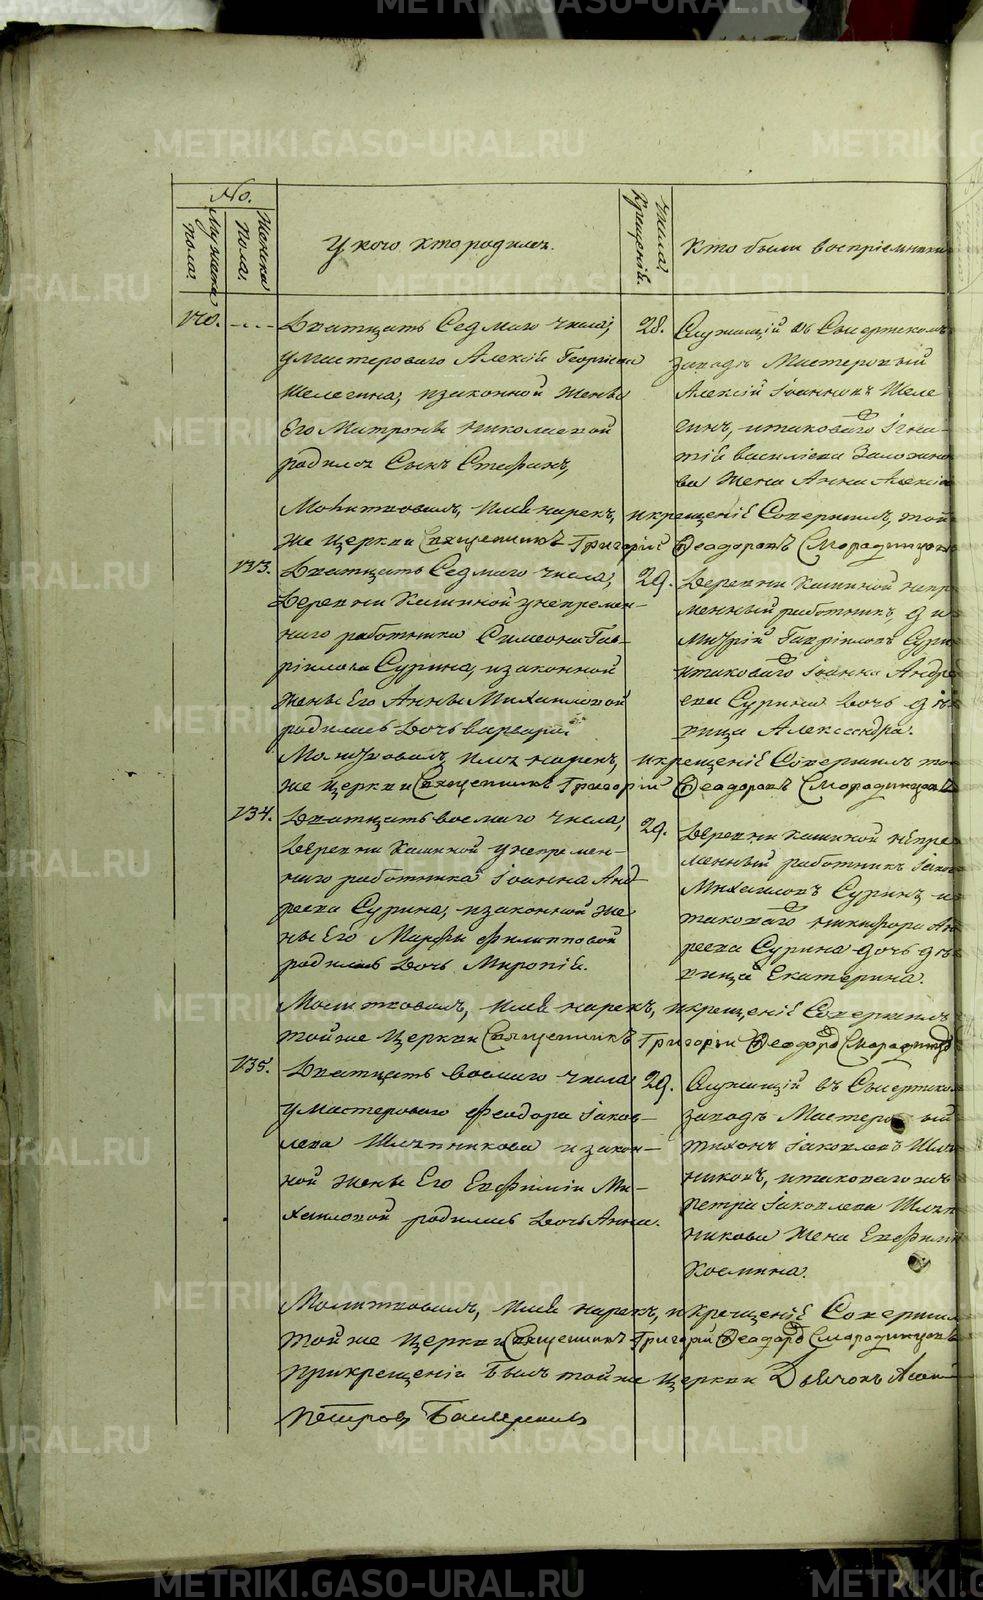 METRIKI.GASO-URAL.RU
No.
Мужеска пола.
Женска пола.
У кого кто родился.
Числа крещенія.
Кто были воспріемники
170. Дватцать Седмаго числа,
у мастероваго Алексія Георгіева
Шелегина, изаконной жены
Его Матроны Николаевой
родился Сынъ Стефанъ,
28. Служащій въ Сысертскомъ
заводѣ Мастеровый
Алексій Іоанновъ Шеле
гинъ, итаковаго Игна
тія василіева
ва жена Анна Алексіе
Молитвовалъ, имя нарекъ, икрещеніе Совершилъ той
же церкви Священникъ Григорій Ѳеодоровъ Смородинцовъ
133. Дватцать Седмаго числа,
Деревни Кашиной унепремен-
наго работника Симеона Гав-
ріилова Сурина, изаконной
жены Его Анны Михаиловой
родилась Дочь варвара.
29. Деревни Кашиной непре
менный работникъ, Ди
митрій Гавріиловъ Сури
итаковаго Іоанна Андре
ева Сурина дочь дѣ
вица Александра.
Молитвовалъ, имя нарекъ, икрещеніе Совершилъ той
же церкви Священникъ Григорій Ѳеодоровъ Смородинцовъ
134. Дватцать восмаго числа,
Деревни Кашиной унепремен-
наго работника Іоанна Анд-
реева Сурина, изаконной же
ны Его Марфы Филипповой
родилась Дочь Миропія.
29. Деревни Кашиной непре
менный работникъ Іаков
Михаиловъ Суринъ и
таковаго Никифора Ан
реева Сурина дочь дѣ
вица Екатерина.
Молитвовалъ, имя нарекъ, икрещеніе Совершилъ
тойже церкви Священникъ Григорій Ѳеодоровъ Смородинцовъ
135. Дватцать восмаго числа
у мастероваго Феодора Іаков-
лева Шляпникова изакон-
ной жены Его Евфиміи Ми-
хаиловой родилась Дочь Анна.
29. Служащій въ Сысертском
заводѣ Мастеровый
Тихонъ Іаковлевъ Шляп
никовъ, итаковагожъ
Петра Іаковлева Шляп
никова жена Евфимія
Космина.
Молитвовалъ, имя нарекъ, икрещеніе Совершилъ
тойже церкви Священникъ Григорій Ѳеодоровъ Смородинцовъ
прикрещеніи былъ тойже церкви Дьячокъ
Петровъ